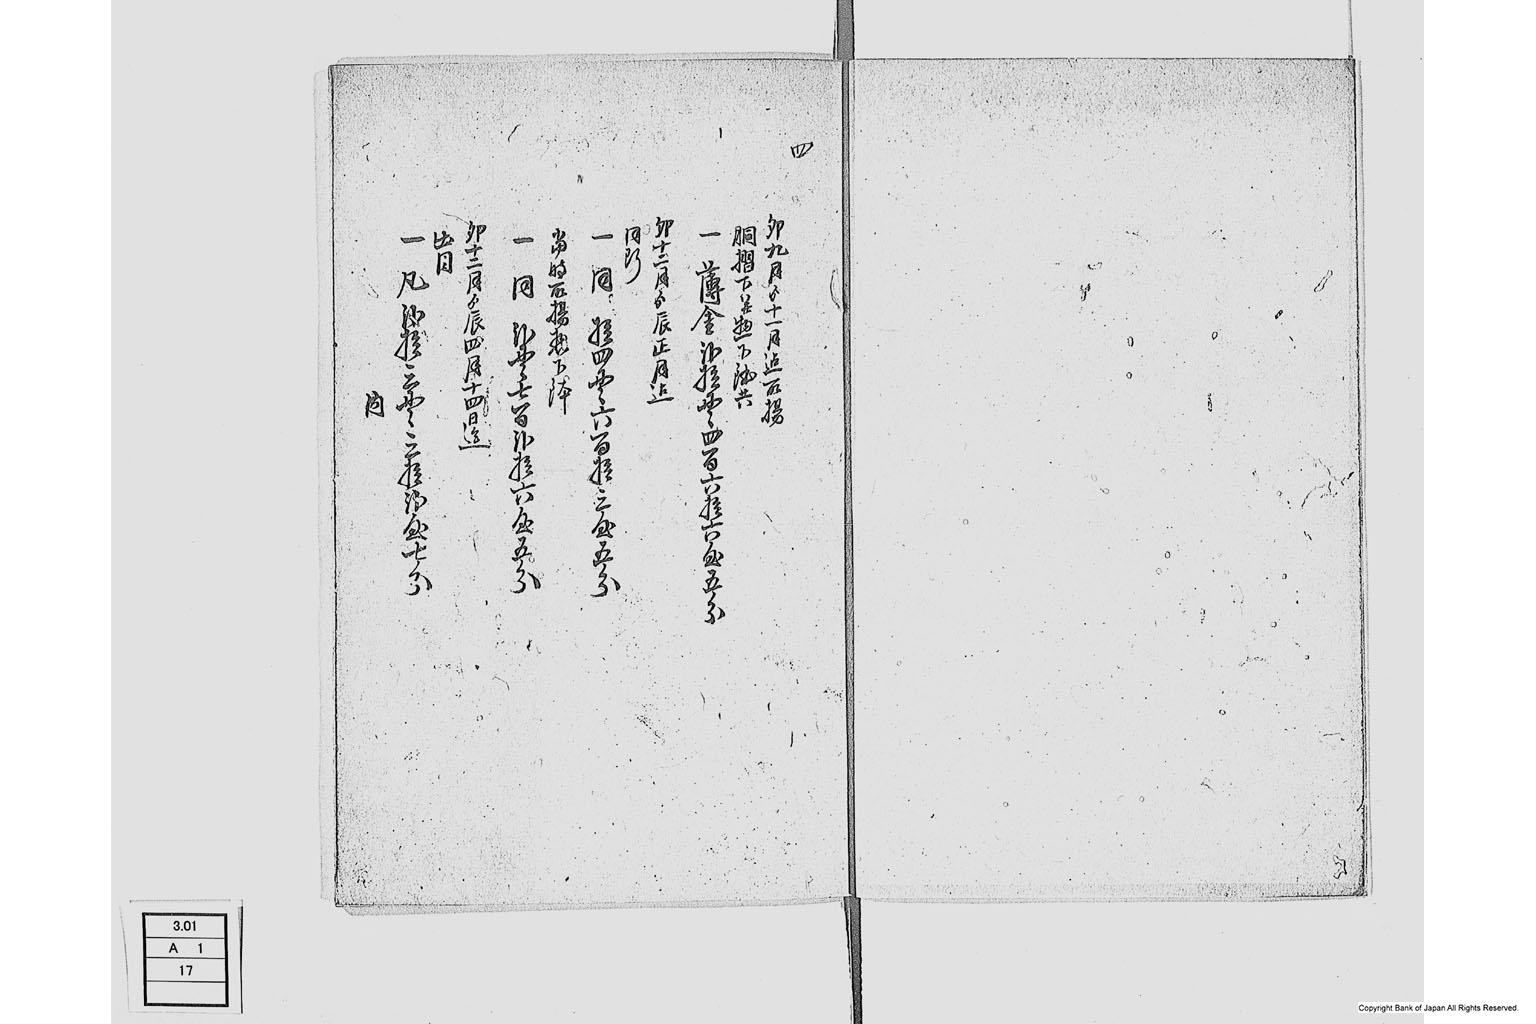 四
卯九月ゟ十一月迄取揚
胴摺下并惣下鉢共
一 薄金 弐拾貫四百六拾六匁五分
卯十二月ゟ辰正月迄
同断
一 同 拾四貫六百拾三匁五分
当時取揚惣下鉢
一 同 弐貫七百弐拾六匁五分
卯十二月ゟ辰四月十四日迄
出目
一 凡 弐拾三貫三拾弐匁七分
内
3.01
A 1
17
Copyright Bank of Japan All Rights Reserved.